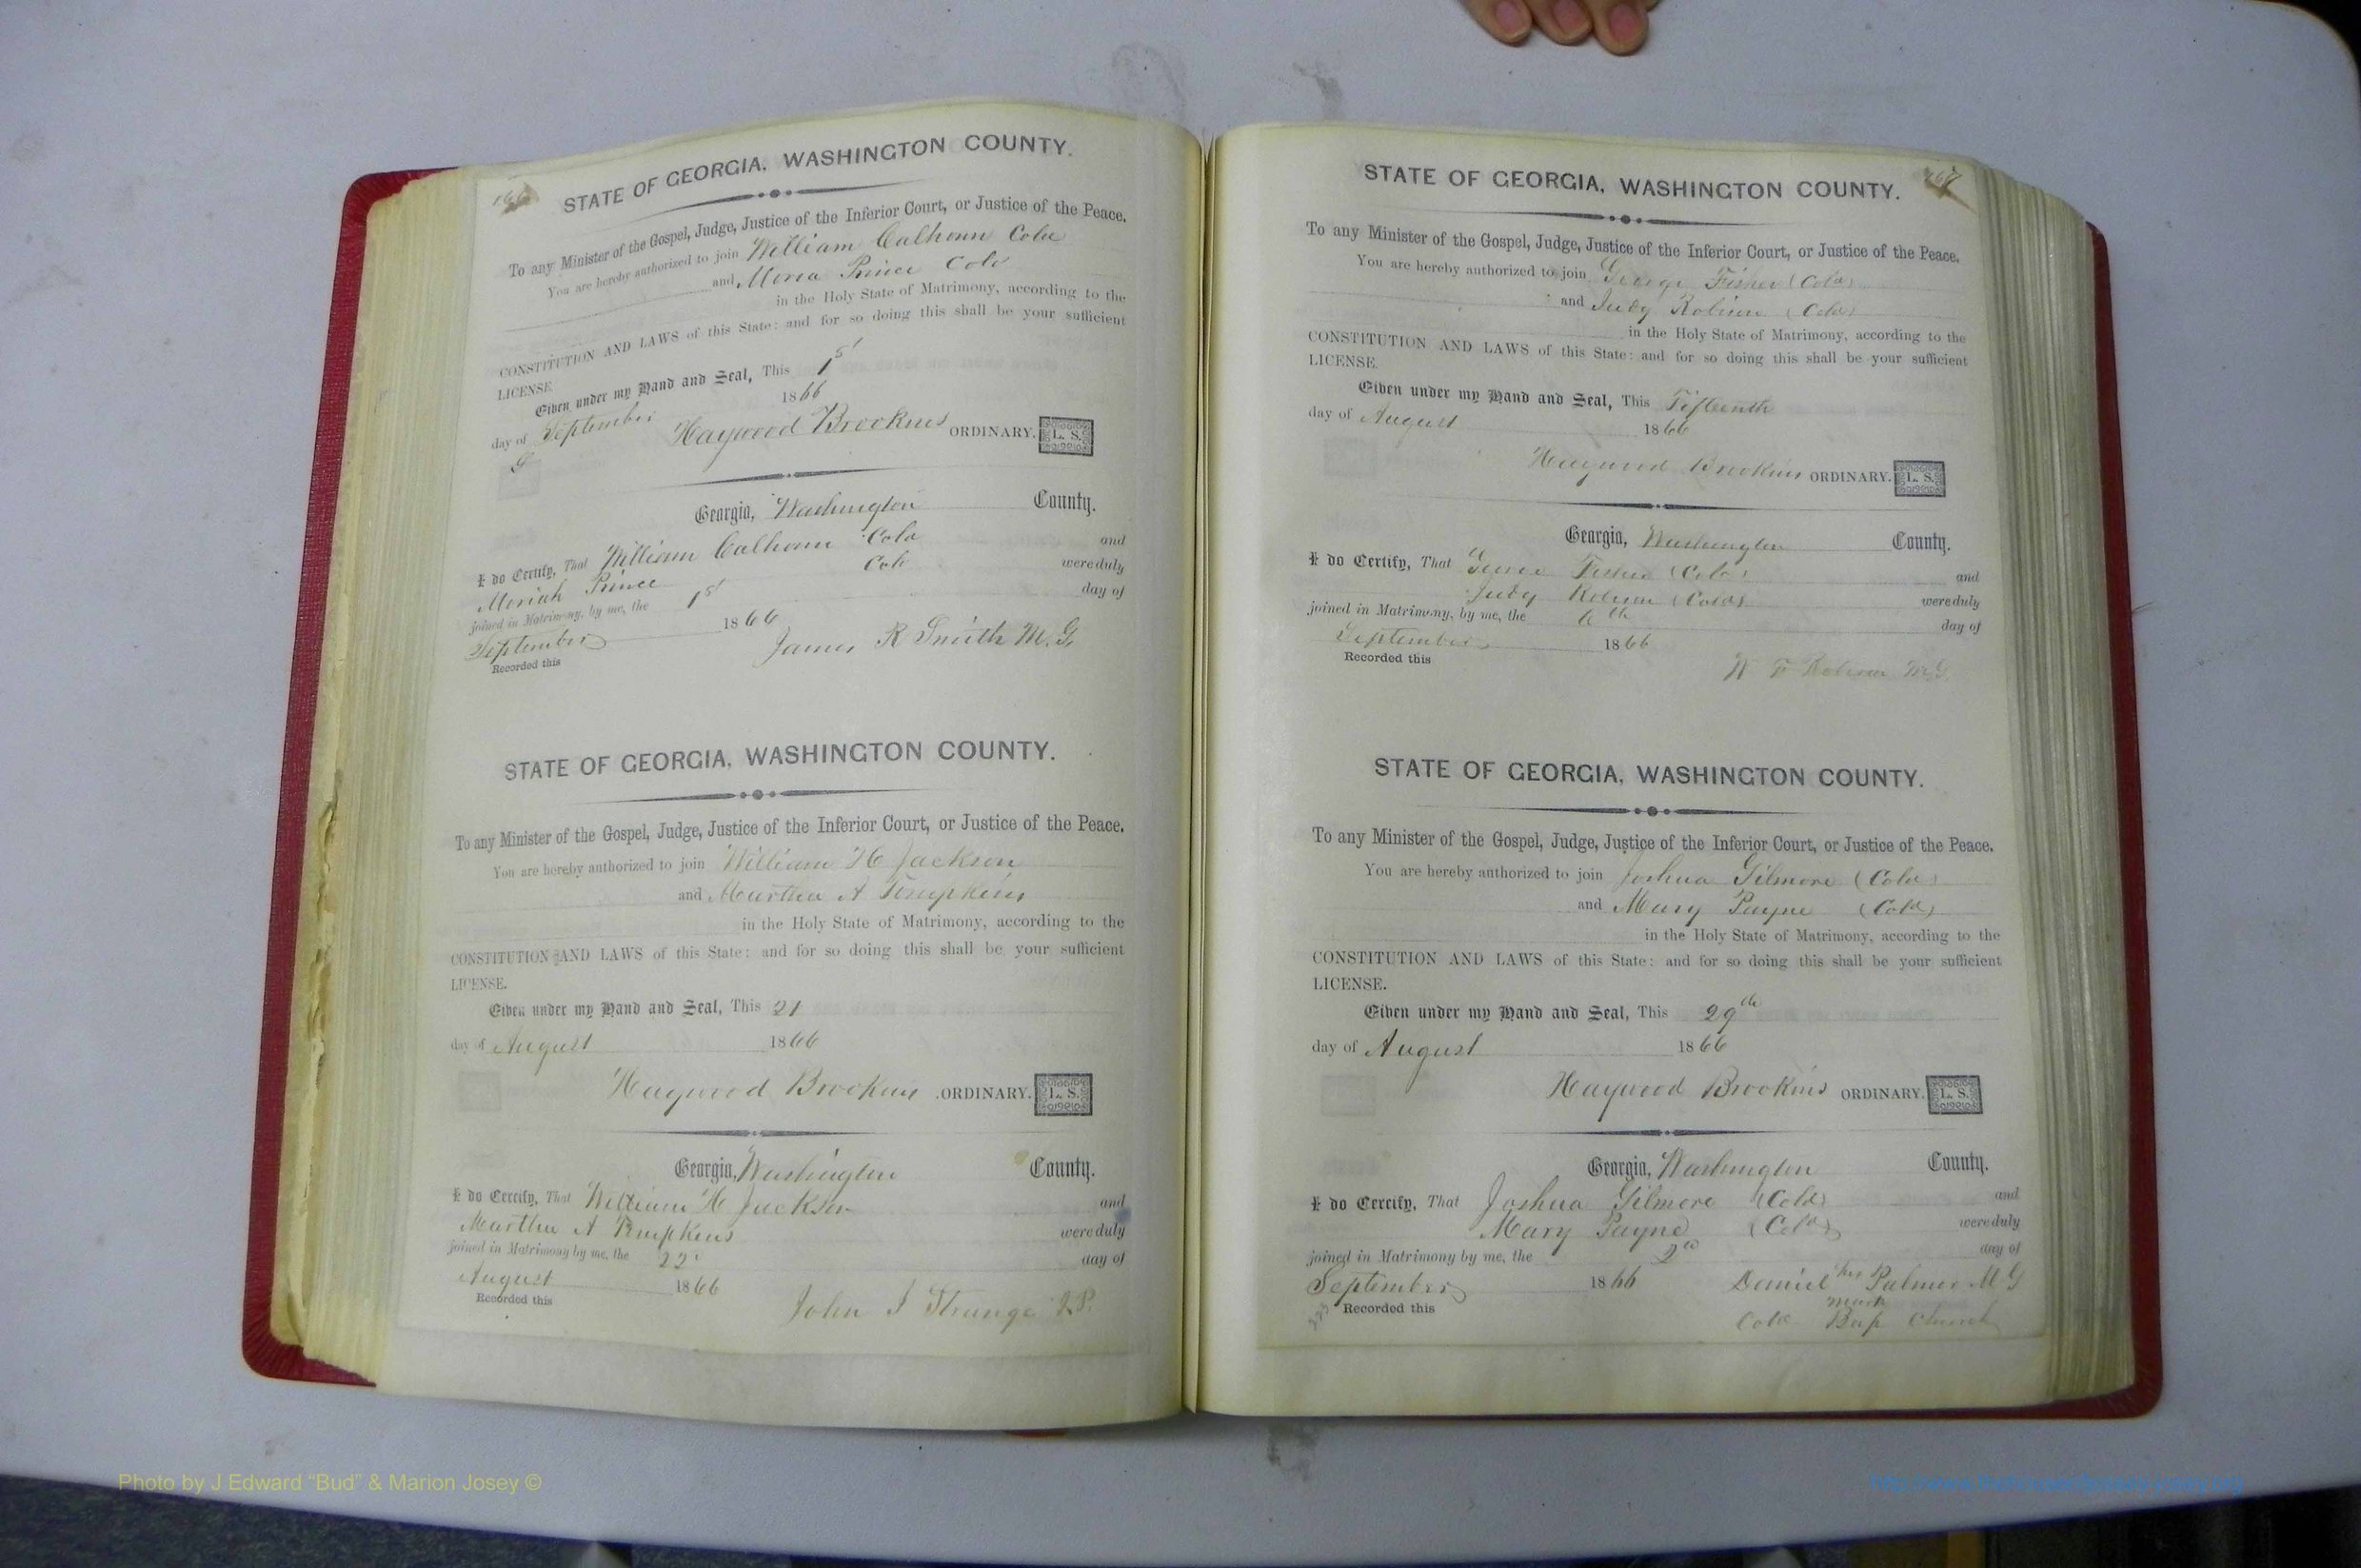 166
STATE OF GEORGIA, WASHINGTON COUNTY.
To any Minister of the Gospel, Judge, Justice of the Inferior Court, or Justice of the Peace.
You are hereby authorized to join William Calhoun Cold
and Moria Prince Cold
in the Holy State of Matrimony, according to the
CONSTITUTION AND LAWS of this State: and for so doing this shall be your sufficient
LICENSE.
Given under my Hand and Seal, This 1st
day of September 1866
Haywood Brookins ORDINARY. L. S.
Georgia, Washington County.
I do Certify, That William Calhoun Cold and
Moriah Prince Cold were duly
joined in Matrimony, by me, the 1st day of
September 1866
James R Smith M. G.
Recorded this
STATE OF GEORGIA, WASHINGTON COUNTY.
To any Minister of the Gospel, Judge, Justice of the Inferior Court, or Justice of the Peace.
You are hereby authorized to join William H Jackson
and Martha A Tompkins
in the Holy State of Matrimony, according to the
CONSTITUTION AND LAWS of this State: and for so doing this shall be your sufficient
LICENSE.
Given under my Hand and Seal, This 21
day of August 1866
Haywood Brookins ORDINARY. L. S.
Georgia, Washington County.
I do Certify, That William H Jackson and
Martha A Tompkins were duly
joined in Matrimony by me, the 22 day of
August 1866
Recorded this
John I Strange J.P.
167
STATE OF GEORGIA, WASHINGTON COUNTY.
To any Minister of the Gospel, Judge, Justice of the Inferior Court, or Justice of the Peace.
You are hereby authorized to join George Fisher (Cold)
and Judy Robison (Cold)
in the Holy State of Matrimony, according to the
CONSTITUTION AND LAWS of this State: and for so doing this shall be your sufficient
LICENSE.
Given under my Hand and Seal, This Fifteenth
day of August 1866
Haywood Brookins ORDINARY. L. S.
Georgia, Washington County.
I do Certify, That George Fisher (Cold) and
Judy Robison (Cold) were duly
joined in Matrimony, by me, the 6th day of
September 1866
Recorded this
Robison M.G.
STATE OF GEORGIA, WASHINGTON COUNTY.
To any Minister of the Gospel, Judge, Justice of the Inferior Court, or Justice of the Peace.
You are hereby authorized to join Joshua Gilmore (Cold)
and Mary Payne (Cold)
in the Holy State of Matrimony, according to the
CONSTITUTION AND LAWS of this State: and for so doing this shall be your sufficient
LICENSE.
Given under my Hand and Seal, This 29th
day of August 1866
Haywood Brookins ORDINARY. L. S.
Georgia, Washington County.
I do Certify, That Joshua Gilmore (Cold) and
Mary Payne (Cold) were duly
joined in Matrimony by me, the 2d day of
September 1866 Daniel his Palmer M G
Recorded this mark
Cold Bap Church
Photo by J Edward "Bud" & Marion Josey ©